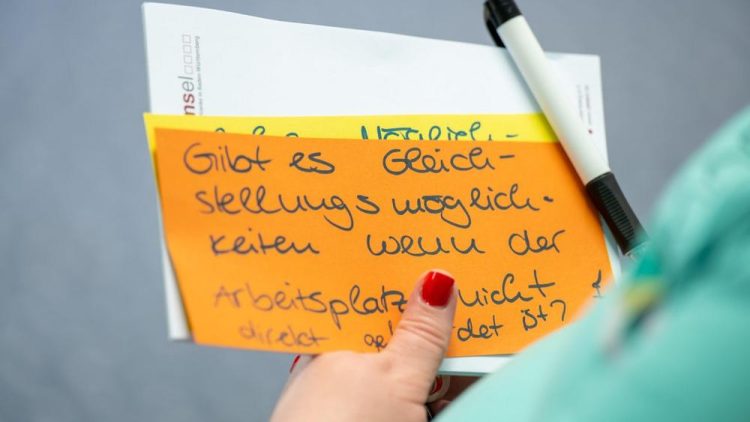 nsel
Möglich-
Gibt es Gleich-
stellungsmöglich-
keiten wenn der
Arbeitsplatz nicht
direkt det ist?